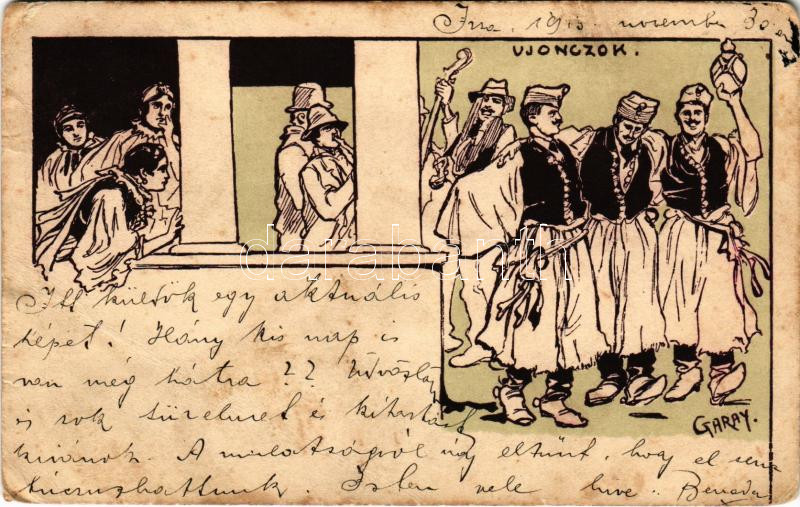 november 30
UJONCZOK.
Itt küldök egy aktuális
képet! Hány kis nap is
van még hátra?? Üdvözlay
is sok türelmet és kitartást
kivánok. A mulatságról úgy eltünt, hogy el sem
búcsuzhattunk. Isten vele
GARAY.
darabanth